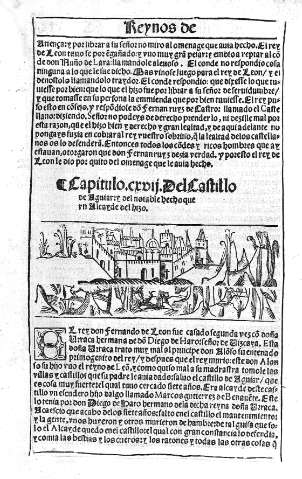 Reynos de
Anengar y por librar a su señor no miro al omenage que auia hecho. El rey
de Leon tuuo se por engañado y vuo muy grã pesar y embio a reptar al cõ
de don Nuño de Lara llamandole aleuoso. El conde no respondio cosa
ninguna a lo que le fue dicho. Mas vinose luego para el rey de Leon/ y el
denostolo llamandolo traydor. El conde respondio: que dixesse lo que tu
uiesse por bien: que lo que el hizo fue por librar a su señor de seruidumbre/
y que tomasse en su persona la emienda que por bien tuuiesse. El rey pu
so esto en cõsejo, y respõdiole dõ Fernan ruyz de Castro llamado el Caste
llano: diziendo. Señor no podeys de derecho prender lo, ni dezille mal por
esta razon, que el hizo bien y derecho y gran lealtad, y de aqui adelante no
pongays fuzia en cobrar al rey vuestro sobrino, q̃ la lealtad de los castella-
nos os lo defendera. Entonces todos los cõdes y ricos hombres que ay
estauan, otorgaron que don Fernan ruyz dezia verdad. y por esto el rey de
Leon le dio por quito del omenage que le auia hecho.
¶ Capitulo. cxvij. Del Castillo
de Aguilar y del notable hecho que
vn Alcayde del hizo.
EL rey don Fernando de Leon fue casado segunda vez cõ doña
Vrraca hermana de dõ Diego de Haro señor de Vizcaya. Esta
doña Vrraca trato muy mal al principe don Alõso su entenado
primogenito del rey/ y despues que el rey murio este don Alon
so su hijo vuo el reyno de Leõ, y como quiso mal a su madrastra tomole las
villas y castillos que su padre le auia dado saluo el castillo de Aguilar/ que
es cosa muy fuerte el qual tuuo cercado siete años. Era alcayde deste cas-
tillo vn escudero hijo dalgo llamado Marcos gutierrez de Benauẽte. Este
lo tenia por don Diego de Haro hermano de la dicha reyna doña Vrraca.
Acaescio que acabo de los siete años falto en el castillo el mantenimiento
y la gente, vnos huyeron y otros murieron de hambre de tal guisa que so-
lo el Alcayde quedo en el castillo: el qual con gran constancia lo defendia,
y comia las bestias y los cueros y los ratones y todas las otras cosas q̃